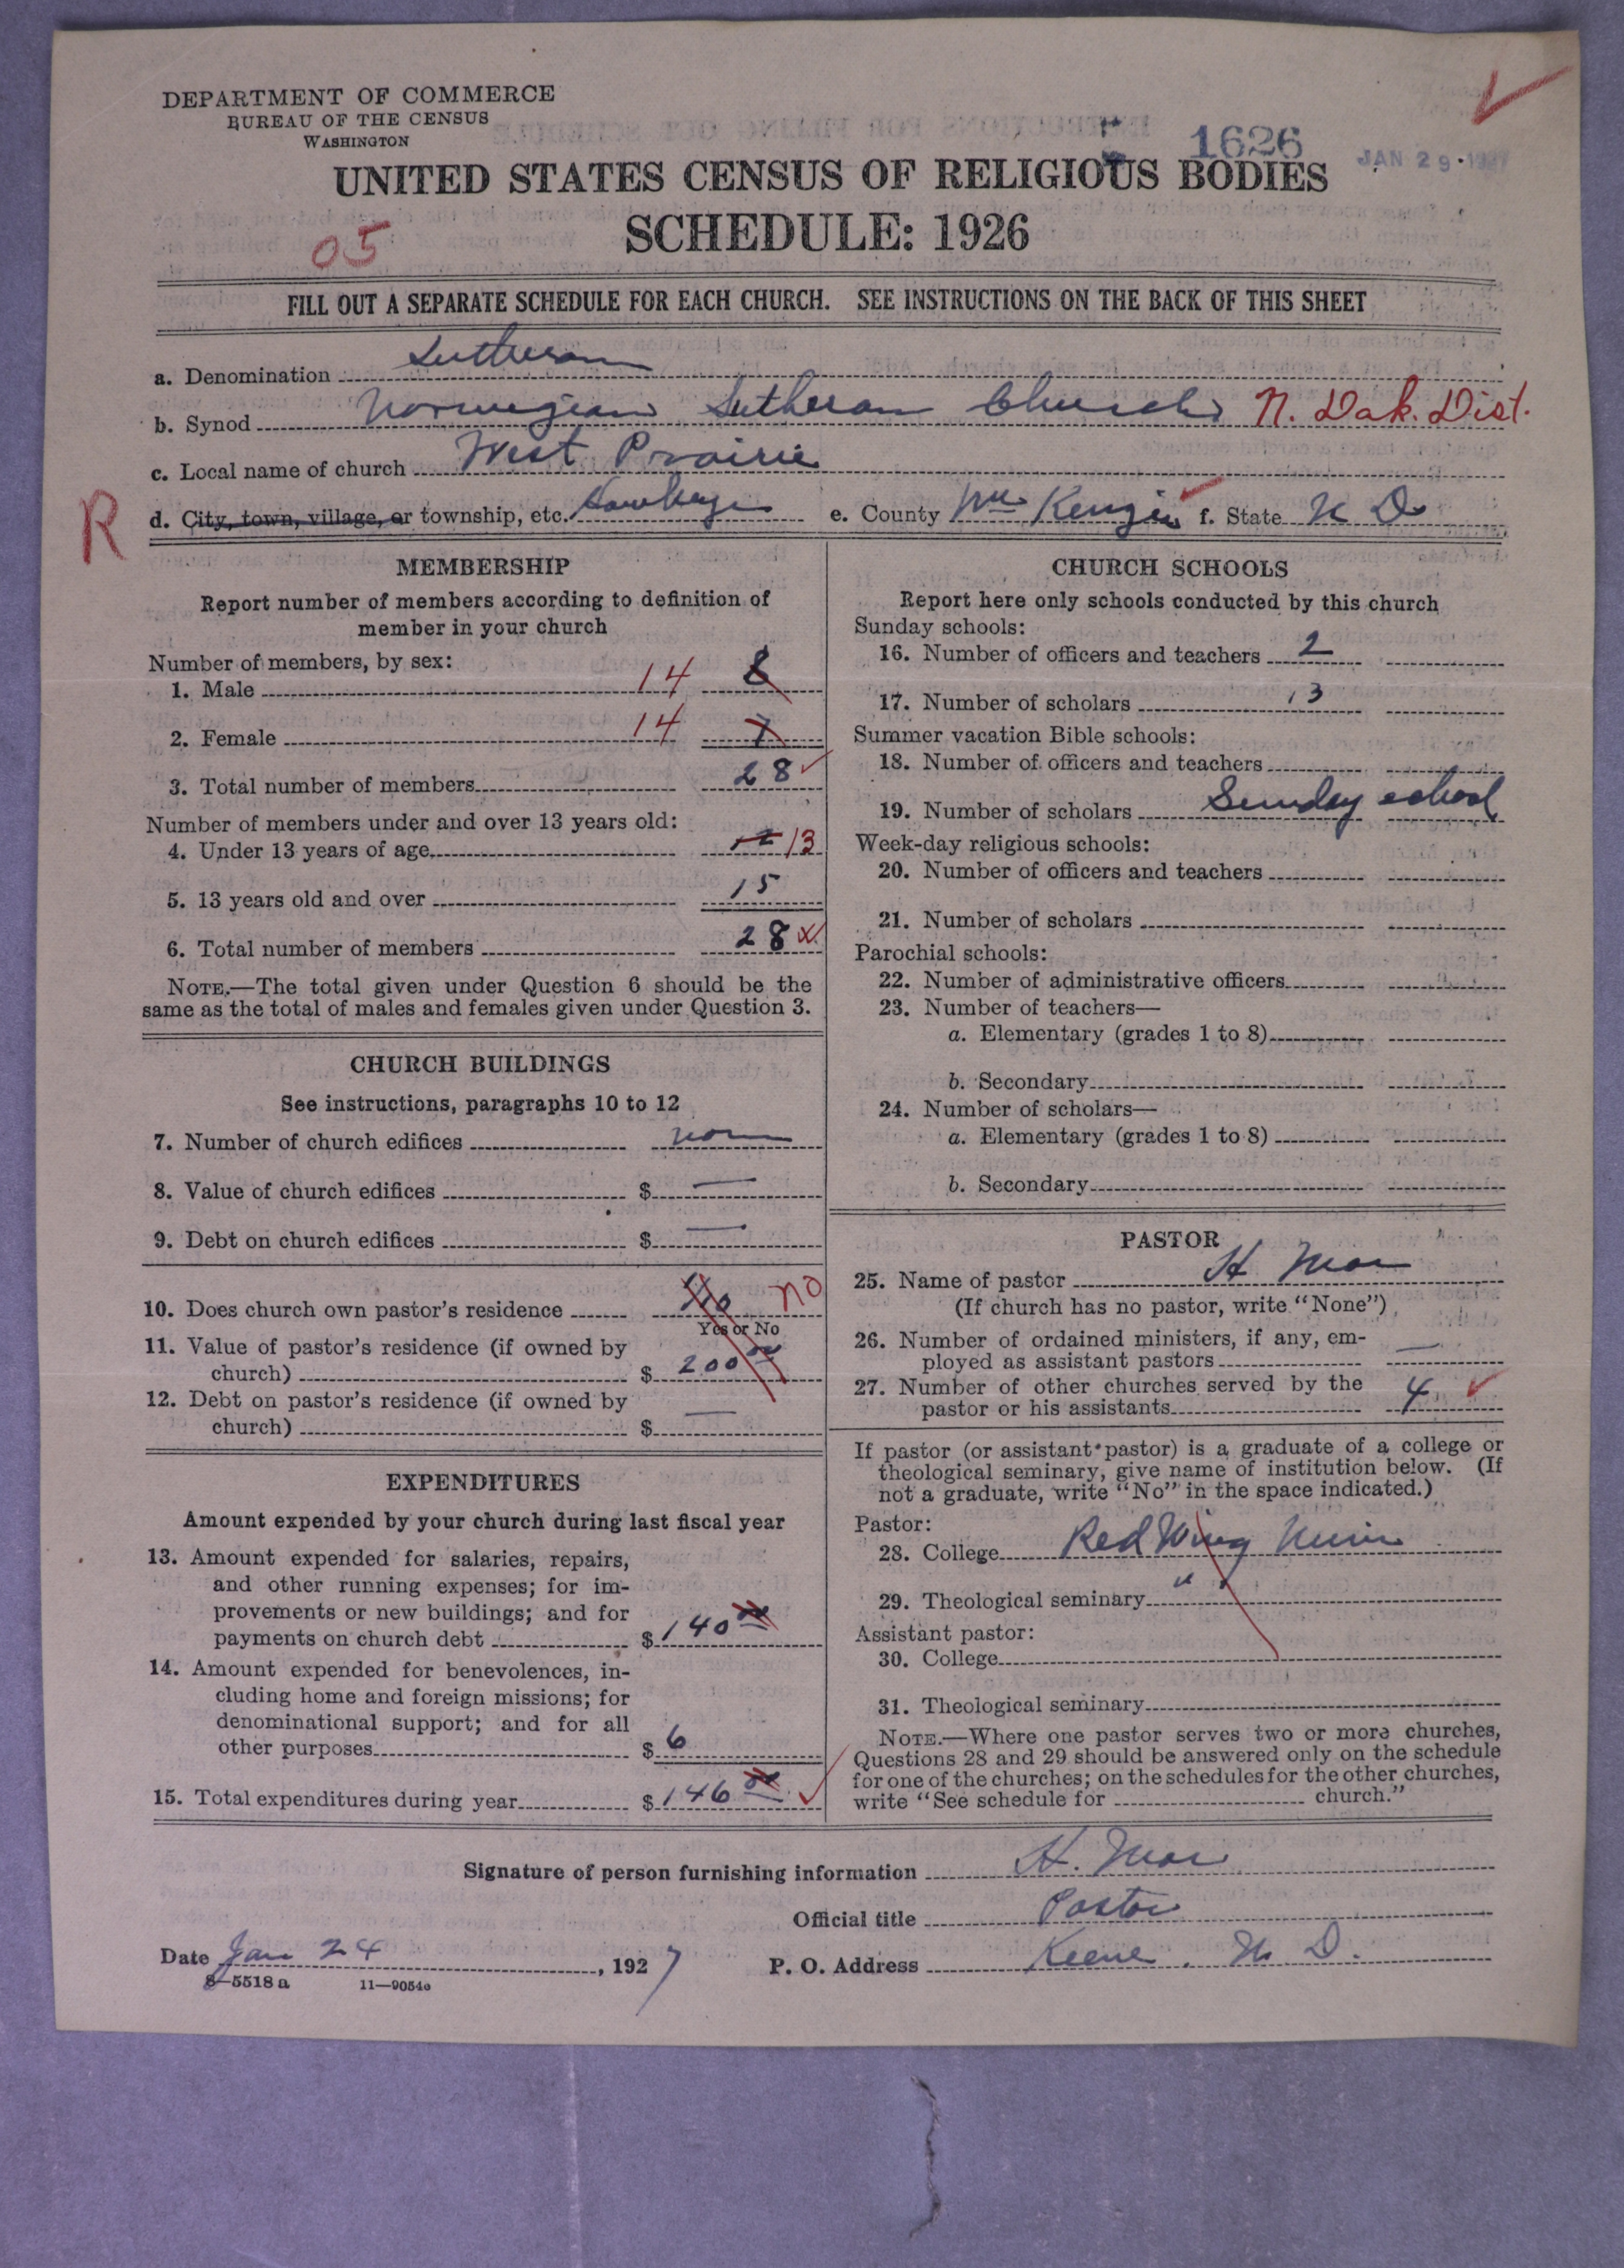 DEPARTMENT OF COMMERCE
BUREAU OF THE CENSUS
WASHINGTON
1626
JAN 29 1927
UNITED STATES CENSUS OF RELIGIOUS BODIES
SCHEDULE: 1926
05
FILL OUT A SEPARATE SCHEDULE FOR EACH CHURCH. SEE INSTRUCTIONS ON THE BACK OF THIS SHEET
a. Denomination Lutheran
b. Synod Norwegian Lutheran Church N. Dak. Dist.
c. Local name of church West Prairie
R
d. City, town, village, or township, etc. e. County Mc Kenzie f. State N D
MEMBERSHIP
Report number of members according to definition of
member in your church
Number of members, by sex:
1. Male 14 8
2. Female 14 7
3. Total number of members 28
Number of members under and over 13 years old:
4. Under 13 years of age 13
5. 13 years old and over 15
6. Total number of members 28
NOTE.—The total given under Question 6 should be the
same as the total of males and females given under Question 3.
CHURCH BUILDINGS
See instructions, paragraphs 10 to 12
7. Number of church edifices none
8. Value of church edifices $ —
9. Debt on church edifices $ —
10. Does church own pastor's residence No no
Yes or No
11. Value of pastor's residence (if owned by
church) $ 200 00
12. Debt on pastor's residence (if owned by
church) $ —
EXPENDITURES
Amount expended by your church during last fiscal year
13. Amount expended for salaries, repairs,
and other running expenses; for im-
provements or new buildings; and for
payments on church debt $ 140 00
14. Amount expended for benevolences, in-
cluding home and foreign missions; for
denominational support; and for all
other purposes $ 6
15. Total expenditures during year $ 146 00
CHURCH SCHOOLS
Report here only schools conducted by this church
Sunday schools:
16. Number of officers and teachers 2
17. Number of scholars 13
Summer vacation Bible schools:
18. Number of officers and teachers
19. Number of scholars Sunday school
Week-day religious schools:
20. Number of officers and teachers
21. Number of scholars
Parochial schools:
22. Number of administrative officers
23. Number of teachers—
a. Elementary (grades 1 to 8)
b. Secondary
24. Number of scholars—
a. Elementary (grades 1 to 8)
b. Secondary
PASTOR
25. Name of pastor H Moe
(If church has no pastor, write "None")
26. Number of ordained ministers, if any, em-
ployed as assistant pastors —
27. Number of other churches served by the
pastor or his assistants 4
If pastor (or assistant pastor) is a graduate of a college or
theological seminary, give name of institution below. (If
not a graduate, write "No" in the space indicated.)
Pastor:
28. College Red Wing Minn
29. Theological seminary " "
Assistant pastor:
30. College
31. Theological seminary
NOTE.—Where one pastor serves two or more churches,
Questions 28 and 29 should be answered only on the schedule
for one of the churches; on the schedules for the other churches,
write "See schedule for church."
Signature of person furnishing information H. Moe
Official title Pastor
Date Jan 24, 1927 P. O. Address Keene, N. D.
8-5518 a 11—9054a